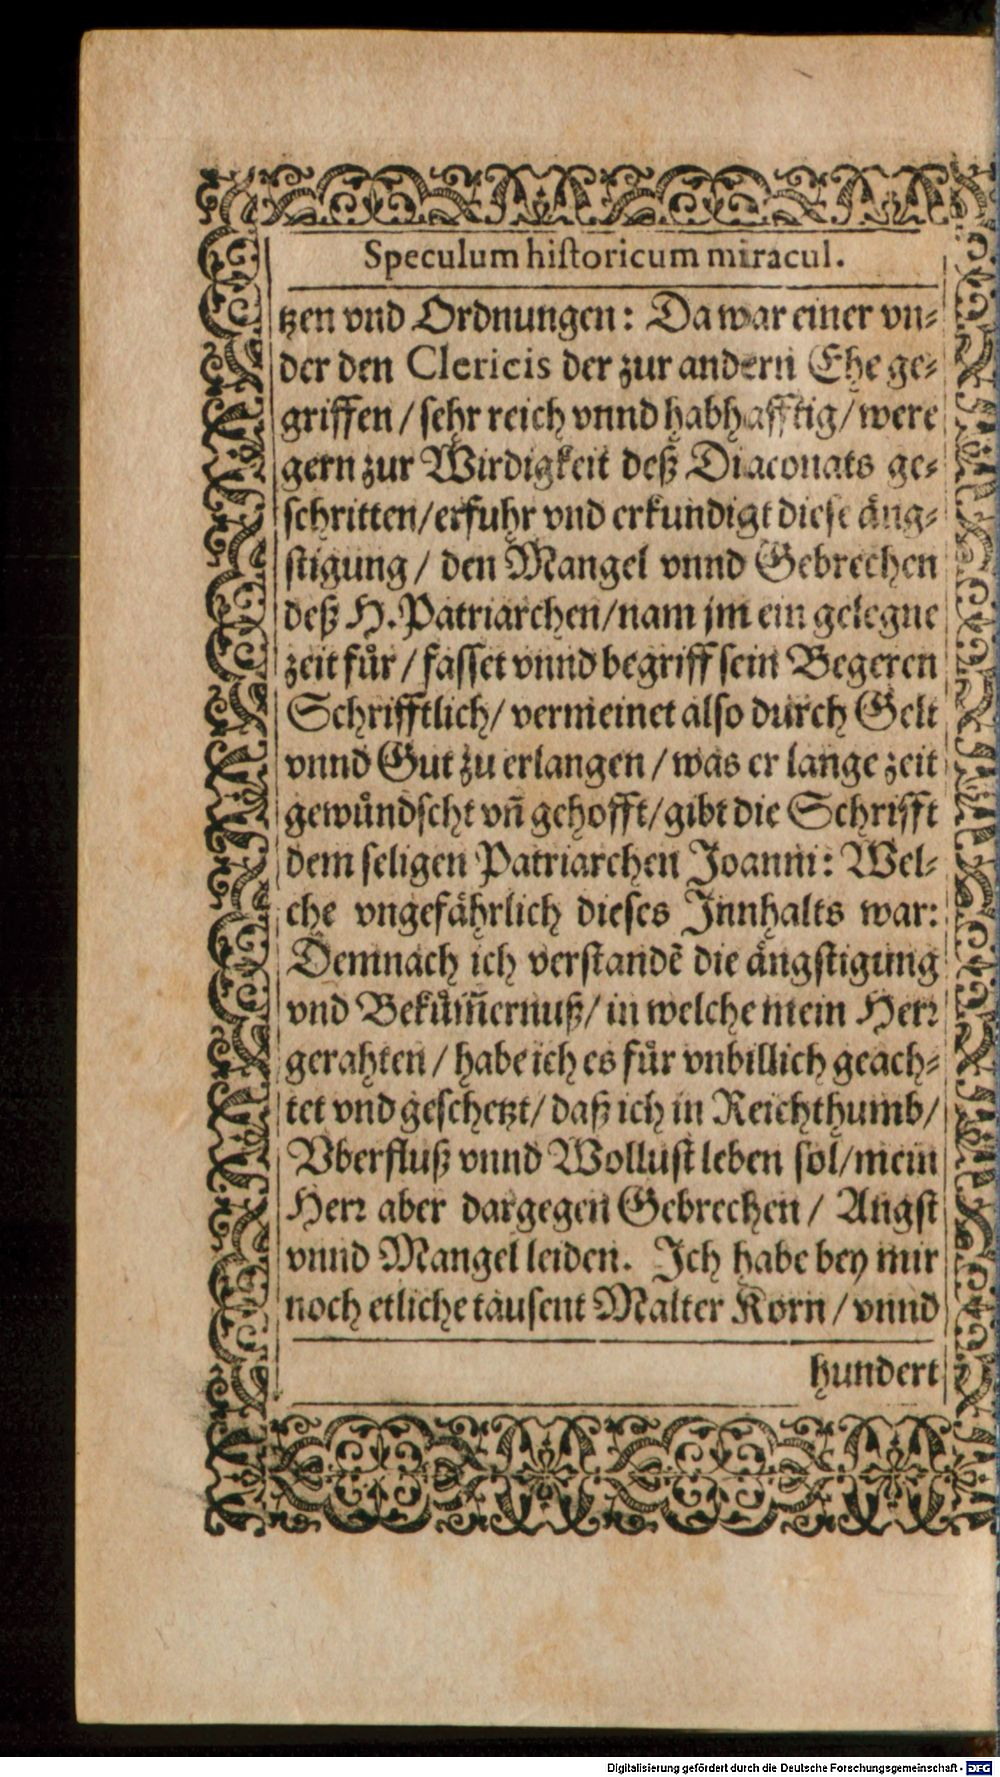 Speculum historicum miracul.
tzen vnd Ordnungen: Da war einer vn⸗
der den Clericis der zur andern Ehe ge⸗
griffen / sehr reich vnnd habhafftig / were
gern zur Wirdigkeit deß Diaconats ge⸗
schritten / erfuhr vnd erkundigt diese äng⸗
stigung / den Mangel vnnd Gebrechen
deß H. Patriarchen / nam jm ein gelegne
zeit fuͤr / fasset vnnd begriff sein Begeren
Schrifftlich / vermeinet also durch Gelt
vnnd Gut zu erlangen / was er lange zeit
gewuͤndscht vñ gehofft / gibt die Schrifft
dem seligen Patriarchen Joanni: Wel⸗
che vngefährlich dieses Innhalts war:
Demnach ich verstandẽ die ängstigung
vnd Bekuͤm̃ernuß / in welche mein Herꝛ
gerahten / habe ich es fuͤr vnbillich geach⸗
tet vnd geschetzt / daß ich in Reichthumb /
Vberfluß vnnd Wollust leben sol / mein
Herꝛ aber dargegen Gebrechen / Angst
vnnd Mangel leiden. Ich habe bey mir
noch etliche tausent Malter Korn / vnnd
hundert
Digitalisierung gefördert durch die Deutsche Forschungsgemeinschaft - DFG